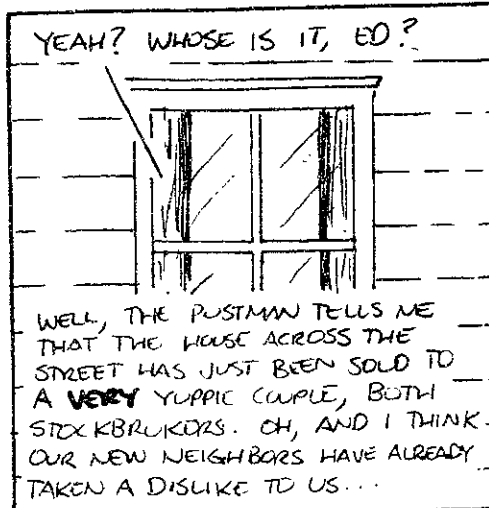 YEAH? WHOSE IS IT, ED?
WELL, THE POSTMAN TELLS ME
THAT THE HOUSE ACROSS THE
STREET HAS JUST BEEN SOLD TO
A VERY YUPPIE COUPLE, BOTH
STOCKBROKERS. OH, AND I THINK
OUR NEW NEIGHBORS HAVE ALREADY
TAKEN A DISLIKE TO US...